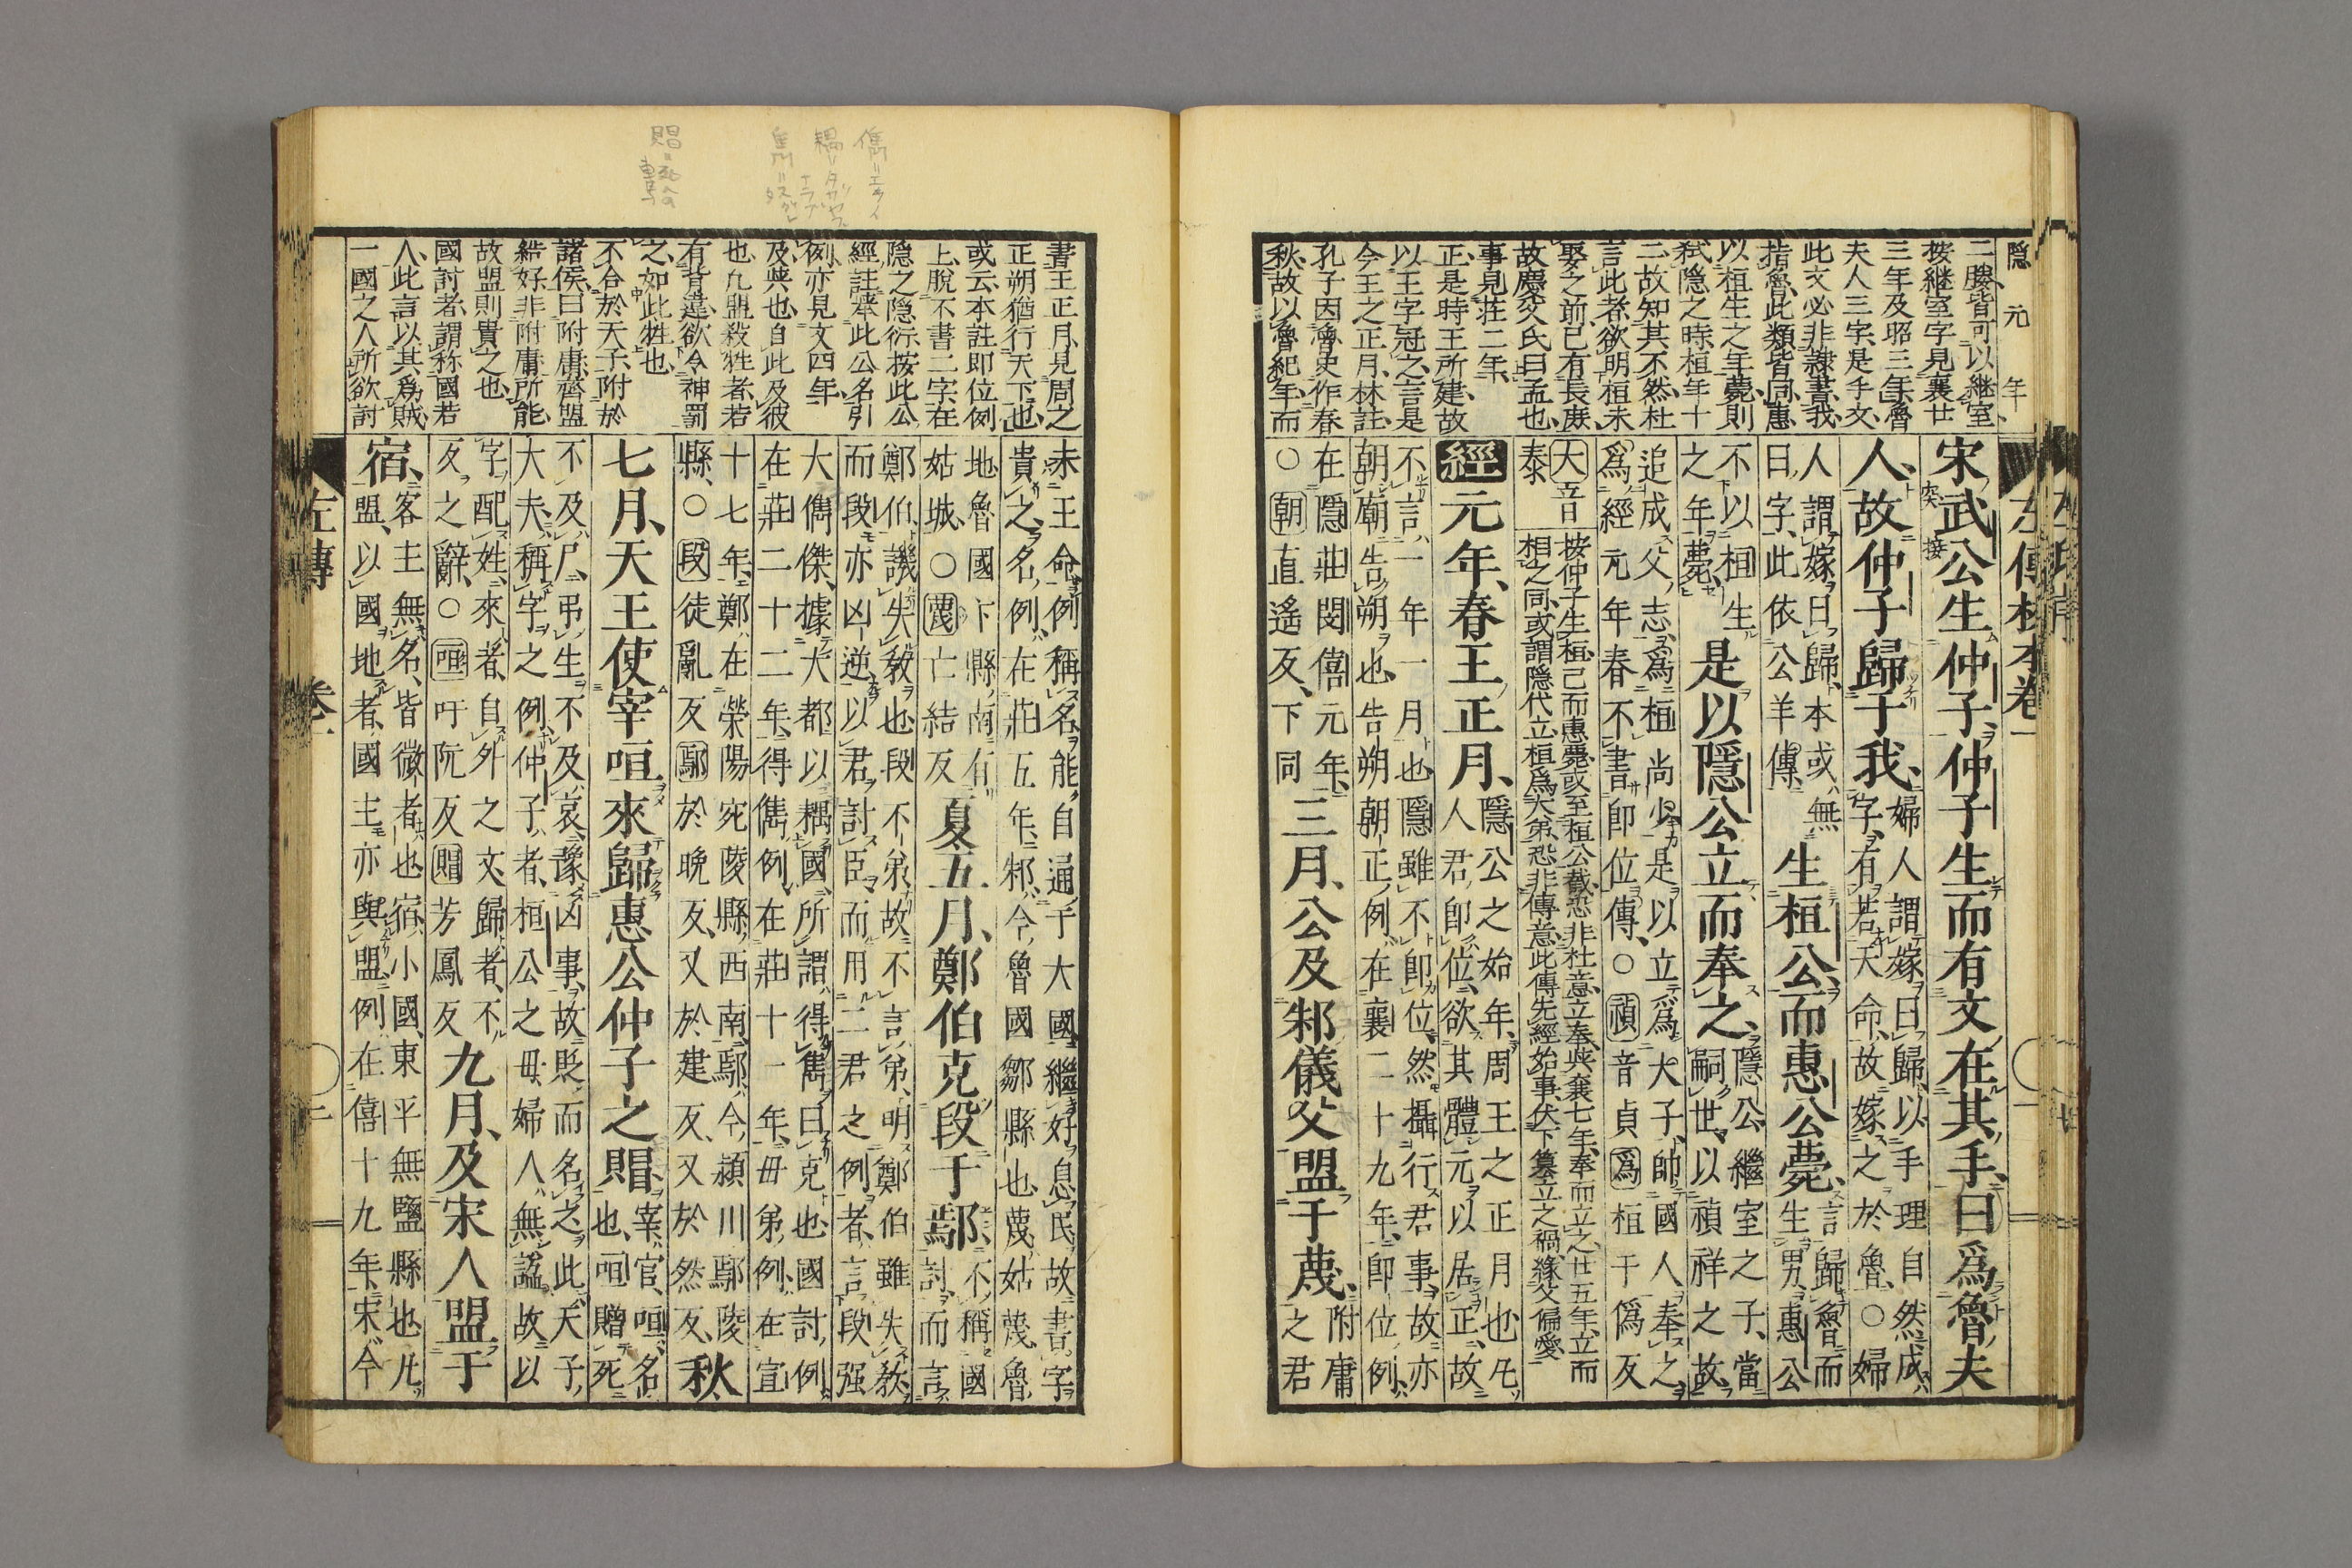 隠元年
二媵皆可以継室
按継室字見襄廿
三年及昭三年魯
夫人三字是手文
此文必非隷書我
指魯此類皆同惠
以桓生之年薨則
弑隠之時桓年十
二故知其不然杜
言此者欲明桓未
娶之前已有長庻
故慶父氏曰孟也
事見荘二年
正是時王所建故
以王字冠之言是
今王之正月林註
孔子因魯史作春
秋故以魯紀年而
宋武公生仲子仲子生而有文在其手曰爲魯夫
人故仲子歸于我
婦人謂嫁曰歸以手理自然成
字有若天命故嫁之於魯○婦
人謂嫁曰歸本或無
曰字此依公羊傳
生桓公而惠公薨
言歸魯而
生男惠公
不以桓生
之年薨
是以隱公立而奉之
隱公繼室之子當
嗣世以禎祥之故
追成父志爲桓尚少是以立爲大子帥國人奉之
爲經元年春不書即位傳○禎音貞爲桓于僞反
大音
泰
按仲子生桓已而惠薨或至桓公截恐非杜意立奉與襄七年奉而立之廿五年立而
相之同或謂隠代立桓爲大弟恐非傳意此傳先經始事伏下簒立之禍縁父偏愛
經元年春王正月
隱公之始年周王之正月也凡
人君即位欲其體元以居正故
不言一年一月也隱雖不即位然攝行君事故亦
朝廟告朔也告朔朝正例在襄二十九年即位例
在隱莊閔僖元年
○朝直遙反下同
三月公及邾儀父盟于蔑
附庸
之君
書王正月見周之
正朔猶行天下也
或云本註即位例
上脱不書二字在
隠之隠衍按此公
經註莑此公名引
例亦見文四年
及與也自此及彼
也凡盟殺牲者若
有背違欲令神罰
之如此牲也
不合於天子附於
諸侯曰附庸齊盟
結好非附庸所能
故盟則貴之也
國討者謂称國若
人此言以其爲賊
一國之人所欲討
未王命例稱名能自通于大國繼好息民故書字
貴之名例在莊五年邾今魯國鄒縣也蔑姑蔑魯
地魯國卞縣南有
姑城○蔑亡結反
夏五月鄭伯克段于鄢
不稱國
討而言
鄭伯譏失敎也段不弟故不言弟明鄭伯雖失敎
而段亦凶逆以君討臣而用二君之例者言段强
大儁傑據大都以耦國所謂得雋曰克也國討例
在莊二十二年得儁例在莊十一年母弟例在宣
十七年鄭在滎陽宛陵縣西南鄢今潁川鄢陵
縣○段徒亂反鄢於晚反又於建反又於然反
秋
七月天王使宰咺來歸惠公仲子之賵
宰官咺名
也咺贈死
不及尸弔生不及哀豫凶事故貶而名之此天子
大夫稱字之例仲子者桓公之母婦人無謚故以
字配姓來者自外之文歸者不
反之辭○咺吁阮反賵芳鳳反
九月及宋人盟于
宿
客主無名皆微者也宿小國東平無鹽縣也凡
盟以國地者國主亦與盟例在僖十九年宋今
左傳 卷一 二
儁=エライ
耦=タガヤス
ナラブ
雋=スグレタ
賵=死人への車馬